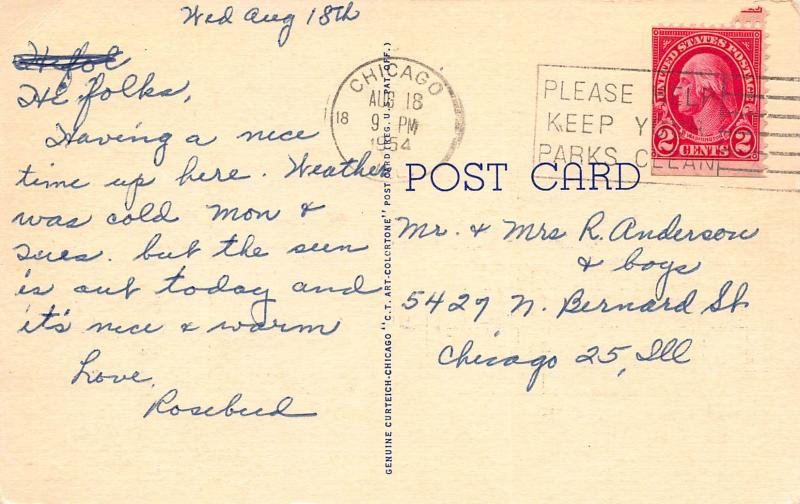 Wed Aug 18th
Hi folks,
Having a nice
time up here. Weather
was cold Mon &
Tues. but the sun
is out today and
it's nice & warm
Love,
Rosebud
GENUINE CURTEICH-CHICAGO "C.T. ART-COLORTONE" POST CARD (REG. U.S. PAT. OFF.)
CHICAGO
AUG 18
9 PM
1954
18
PLEASE HELP
KEEP
PARKS CLEAN
UNITED STATES POSTAGE
WASHINGTON
2 CENTS 2
POST CARD
Mr. & Mrs R. Anderson
& boys
5427 N. Bernard St
Chicago 25, Ill